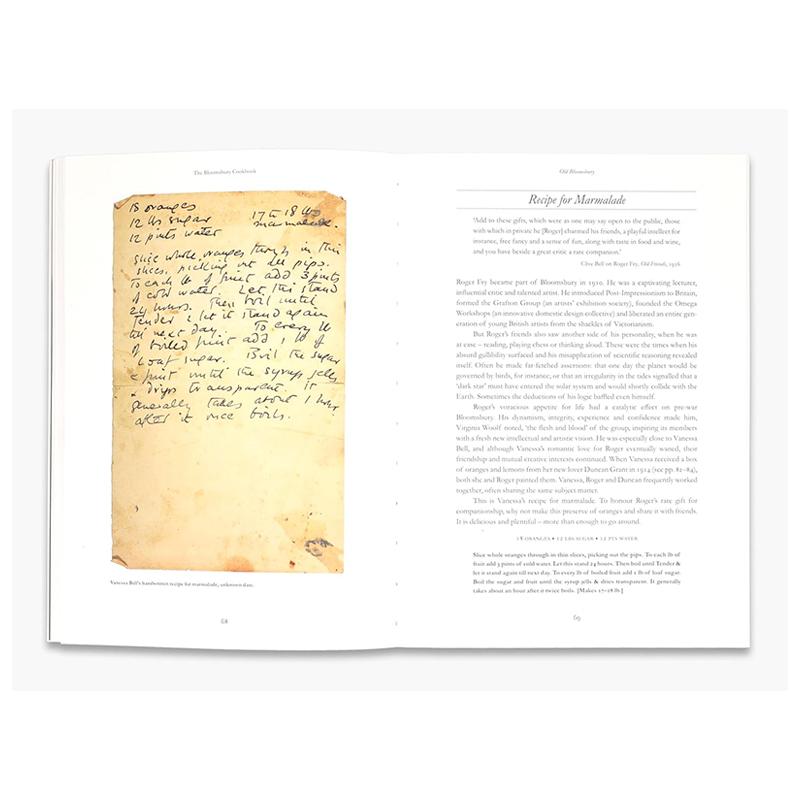 The Bloomsbury Cookbook
18 oranges
12 lbs sugar 17 to 18 lbs
12 pints water marmalade.
Slice whole oranges through in thin
slices, picking out all pips.
To each lb of fruit add 3 pints
of cold water. Let this stand
24 hours. Then boil until
tender & let it stand again
till next day. To every lb
of boiled fruit add 1 lb of
loaf sugar. Boil the sugar
& fruit until the syrup jells
& drips transparent. It
generally takes about 1 hour
after it once boils.
Vanessa Bell's handwritten recipe for marmalade, unknown date.
68
Old Bloomsbury
Recipe for Marmalade
'Add to these gifts, which were as one may say open to the public, those
with which in private he [Roger] charmed his friends, a playful intellect for
instance, free fancy and a sense of fun, along with taste in food and wine,
and you have beside a great critic a rare companion.'
Clive Bell on Roger Fry, Old Friends, 1956
Roger Fry became part of Bloomsbury in 1910. He was a captivating lecturer,
influential critic and talented artist. He introduced Post-Impressionism to Britain,
formed the Grafton Group (an artists' exhibition society), founded the Omega
Workshops (an innovative domestic design collective) and liberated an entire gen-
eration of young British artists from the shackles of Victorianism.
But Roger's friends also saw another side of his personality, when he was
at ease – reading, playing chess or thinking aloud. These were the times when his
absurd gullibility surfaced and his misapplication of scientific reasoning revealed
itself. Often he made far-fetched assertions: that one day the planet would be
governed by birds, for instance, or that an irregularity in the tides signalled that a
'dark star' must have entered the solar system and would shortly collide with the
Earth. Sometimes the deductions of his logic baffled even himself.
Roger's voracious appetite for life had a catalytic effect on pre-war
Bloomsbury. His dynamism, integrity, experience and confidence made him,
Virginia Woolf noted, 'the flesh and blood' of the group, inspiring its members
with a fresh new intellectual and artistic vision. He was especially close to Vanessa
Bell, and although Vanessa's romantic love for Roger eventually waned, their
friendship and mutual creative interests continued. When Vanessa received a box
of oranges and lemons from her new lover Duncan Grant in 1914 (see pp. 82–84),
both she and Roger painted them. Vanessa, Roger and Duncan frequently worked
together, often sharing the same subject matter.
This is Vanessa's recipe for marmalade. To honour Roger's rare gift for
companionship, why not make this preserve of oranges and share it with friends.
It is delicious and plentiful – more than enough to go around.
18 ORANGES • 12 LBS SUGAR • 12 PTS WATER
Slice whole oranges through in thin slices, picking out the pips. To each lb of
fruit add 3 pints of cold water. Let this stand 24 hours. Then boil until Tender &
let it stand again till next day. To every lb of boiled fruit add 1 lb of loaf sugar.
Boil the sugar and fruit until the syrup jells & dries transparent. It generally
takes about an hour after it twice boils. [Makes 17–18 lb]
69